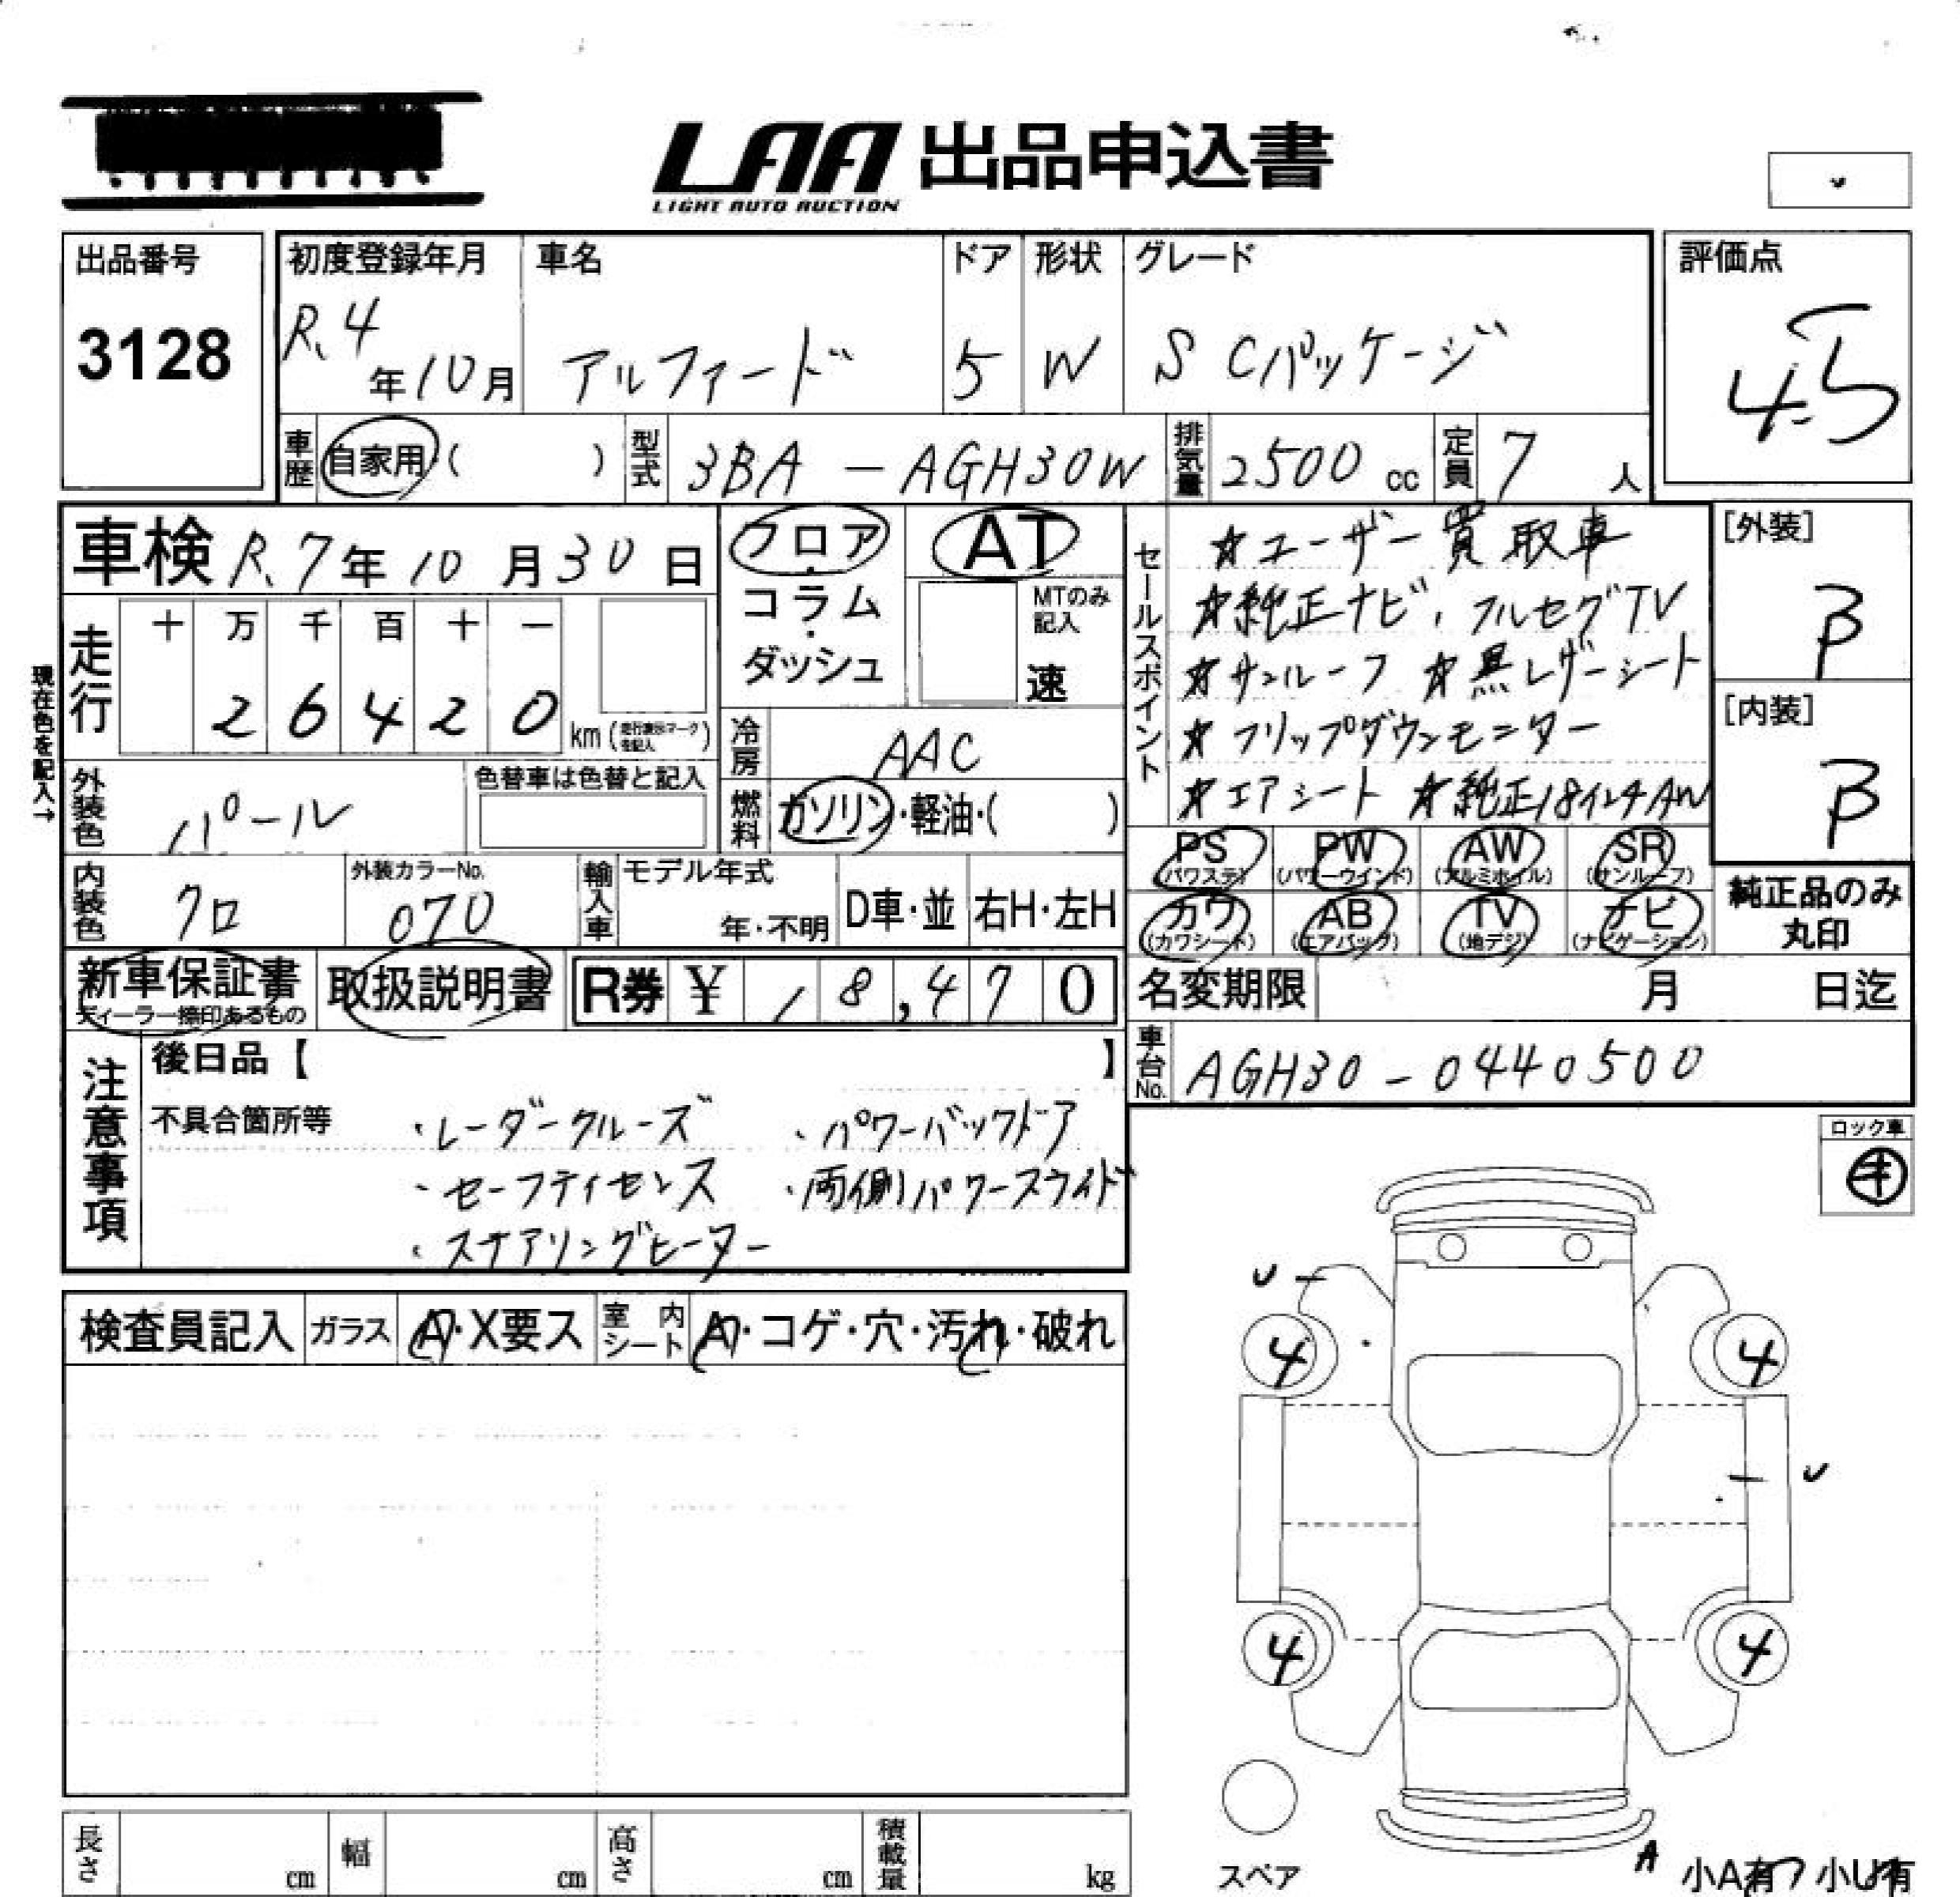 LAA 出品申込書
LIGHT AUTO AUCTION
出品番号
3128
初度登録年月
R.4年10月
車名
アルファード
ドア
5
形状
W
グレード
S Cパッケージ
評価点
4.5
車歴 自家用・( )
型式 3BA-AGH30W
排気量 2500 cc
定員 7人
車検 R.7年10月30日
フロア・コラム・ダッシュ
AT
MTのみ記入
速
現在色を記入→
走行
十 万 千 百 十 一
2 6 4 2 0 km (走行表示マークを記入)
冷房 AAC
燃料 ガソリン・軽油・( )
外装色 パール
色替車は色替と記入
内装色 クロ
外装カラーNo.
070
輸入車 モデル年式
年・不明
D車・並
右H・左H
セールスポイント
☆ユーザー買取車
☆純正ナビ、フルセグTV
☆サンルーフ ☆黒レザーシート
☆フリップダウンモニター
☆エアシート ☆純正18インチAW
[外装]
B
[内装]
B
PS (パワステ)
PW (パワーウインド)
AW (アルミホイル)
SR (サンルーフ)
カワ (カワシート)
AB (エアバック)
TV (地デジ)
ナビ (ナビゲーション)
純正品のみ丸印
新車保証書
ディーラー捺印あるもの
取扱説明書
R券 ¥ 18,470
名変期限 月 日迄
車台No. AGH30-0440500
注意事項
後日品【 】
不具合箇所等
・レーダークルーズ ・パワーバックドア
・セーフティセンス ・両側パワースライド
・ステアリングヒーター
ロック車
キ
検査員記入
ガラス A・X要ス
室内シート A・コゲ・穴・汚れ・破れ
U
4
4
U
4
4
スペア
A
小A有 小U有
長さ cm
幅 cm
高さ cm
積載量 kg